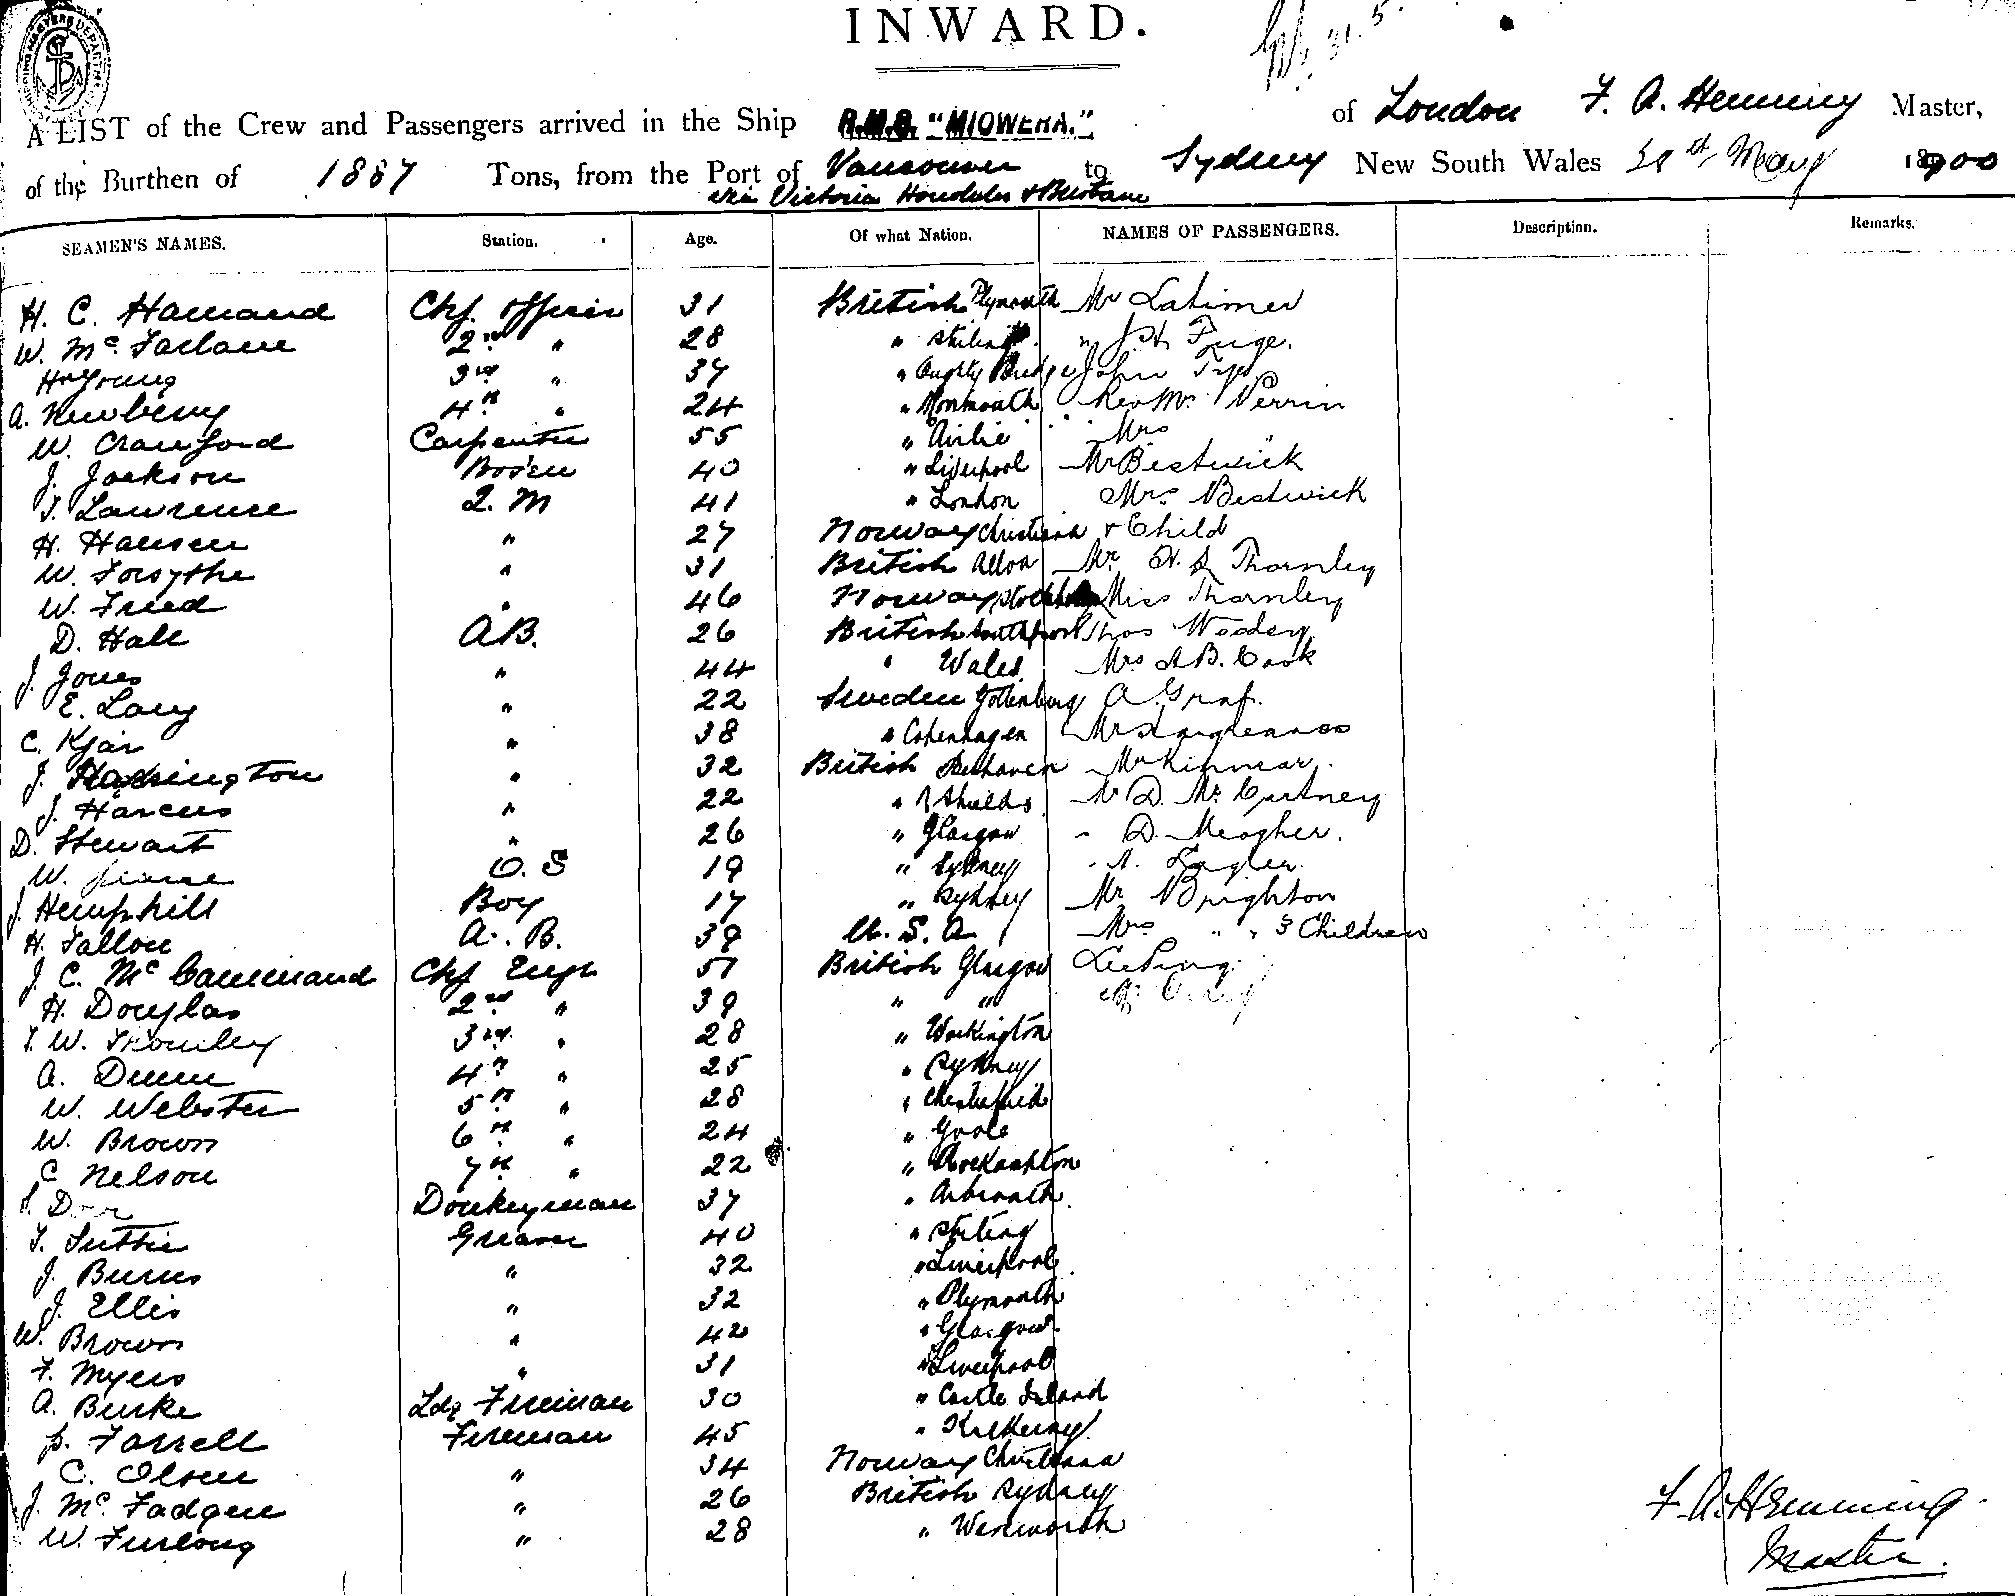 INWARD.
A LIST of the Crew and Passengers arrived in the Ship R.M.S. "MIOWERA." of London F. A. Hemming Master,
of the Burthen of 1887 Tons, from the Port of Vancouver to Sydney New South Wales May 1900
via Victoria Honolulu & Brisbane
SEAMEN'S NAMES. Station. Age. Of what Nation. NAMES OF PASSENGERS. Description. Remarks.
H. C. Hamand Chf. Officer 31 British Plymouth Mr Latimer
W. Mc Farlane 2nd " 28 " Stirling " J. H.
H Young 3rd " 37 " John
A. Newberry 4th " 24 " Monmouth Rev Mr Perrin
W. Crawford Carpenter 55 " Airlie Mrs "
J. Jackson Bos'en 40 " Liverpool Mr Bestwick
T. Lawrence Q. M 41 " London Mrs Bestwick
H. Hansen " 27 Norway Christiana & Child
W. Forsythe " 31 British Alloa Mr. H. S. Thornley
W. Freed " 46 Norway Miss Thornley
D. Hall A.B. 26 British Southport Thos
J. Jones " 44 " Wales Mrs A B. Cook
E. Lang " 22 Sweden Gottenburg A. Graf.
C. Kjar " 38 " Copenhagen Mr Hargreaves
J. " 32 British Mr Kinmar.
J. Harcus " 22 " N Shields Mr D. Mc Cartney
D. Stewart " 26 " Glasgow " D. Meagher.
W. O. S 19 " Sydney " A.
J. Hemphill Boy 17 " Sydney Mr Brighton
H. Fallon A. B. 39 U. S. A Mrs " " 3 Children
J. C. Mc Cammand Chf Engr 51 British Glasgow
H. Douglas 2nd " 39 " "
T. W. 3rd " 28 " Workington
A. Dunn 4th " 25 " Sydney
W. Webster 5th " 28 " Chesterfield
W. Brown 6th " 24 " Goole
C Nelson 7th " 22 " Rockhampton
Donkeyman 37 " Arbroath
T. Suttie Greaser 40 " Stirling
J. Burns " 32 " Liverpool
J. Ellis " 32 " Plymouth
W. Brown " 42 " Glasgow
F. Myers " 31 " Liverpool
A. Burke Ldg Fireman 30 " Castle Island
P. Farrell Fireman 45 " Kilkenny
C. Olsen " 34 Norway Christiana
J. Mc Fadgen " 26 British Sydney
W. Furlong " 28 " Wentworth
F. A. Hemming
Master.